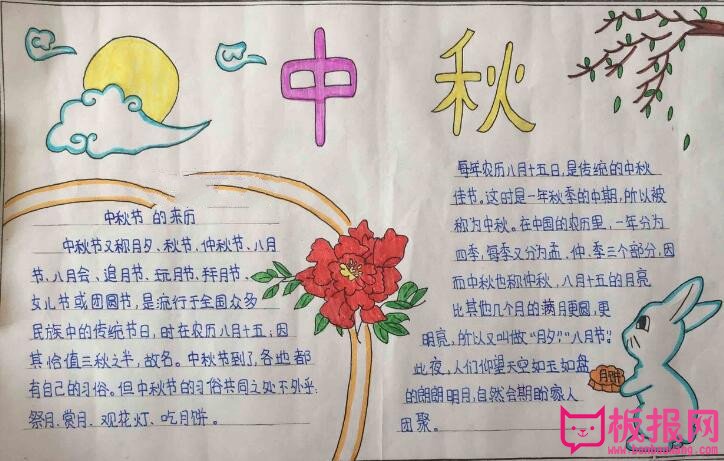 中秋
中秋节的来历
中秋节又称月夕、秋节、仲秋节、八月
节、八月会、追月节、玩月节、拜月节、
女儿节或团圆节，是流行于全国众多
民族中的传统节日，时在农历八月十五；因
其恰值三秋之半，故名。中秋节到了，各地都
有自己的习俗。但中秋节的习俗共同之处不外乎：
祭月、赏月、观花灯、吃月饼。
每年农历八月十五日，是传统的中秋
佳节。这时是一年秋季的中期，所以被
称为中秋。在中国的农历里，一年分为
四季，每季又分为孟、仲、季三个部分，因
而中秋也称仲秋。八月十五的月亮
比其他几个月的满月更圆，更
明亮，所以又叫做“月夕”“八月节”。
此夜，人们仰望天空如玉如盘
的朗朗明月，自然会期盼家人
团聚。
月饼
板报网
www.banbaowang.com